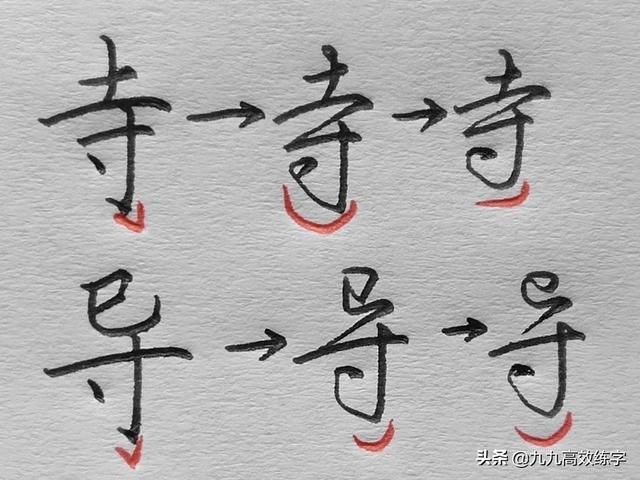 寺→寺→寺
导→导→导
头条 @九九高效练字